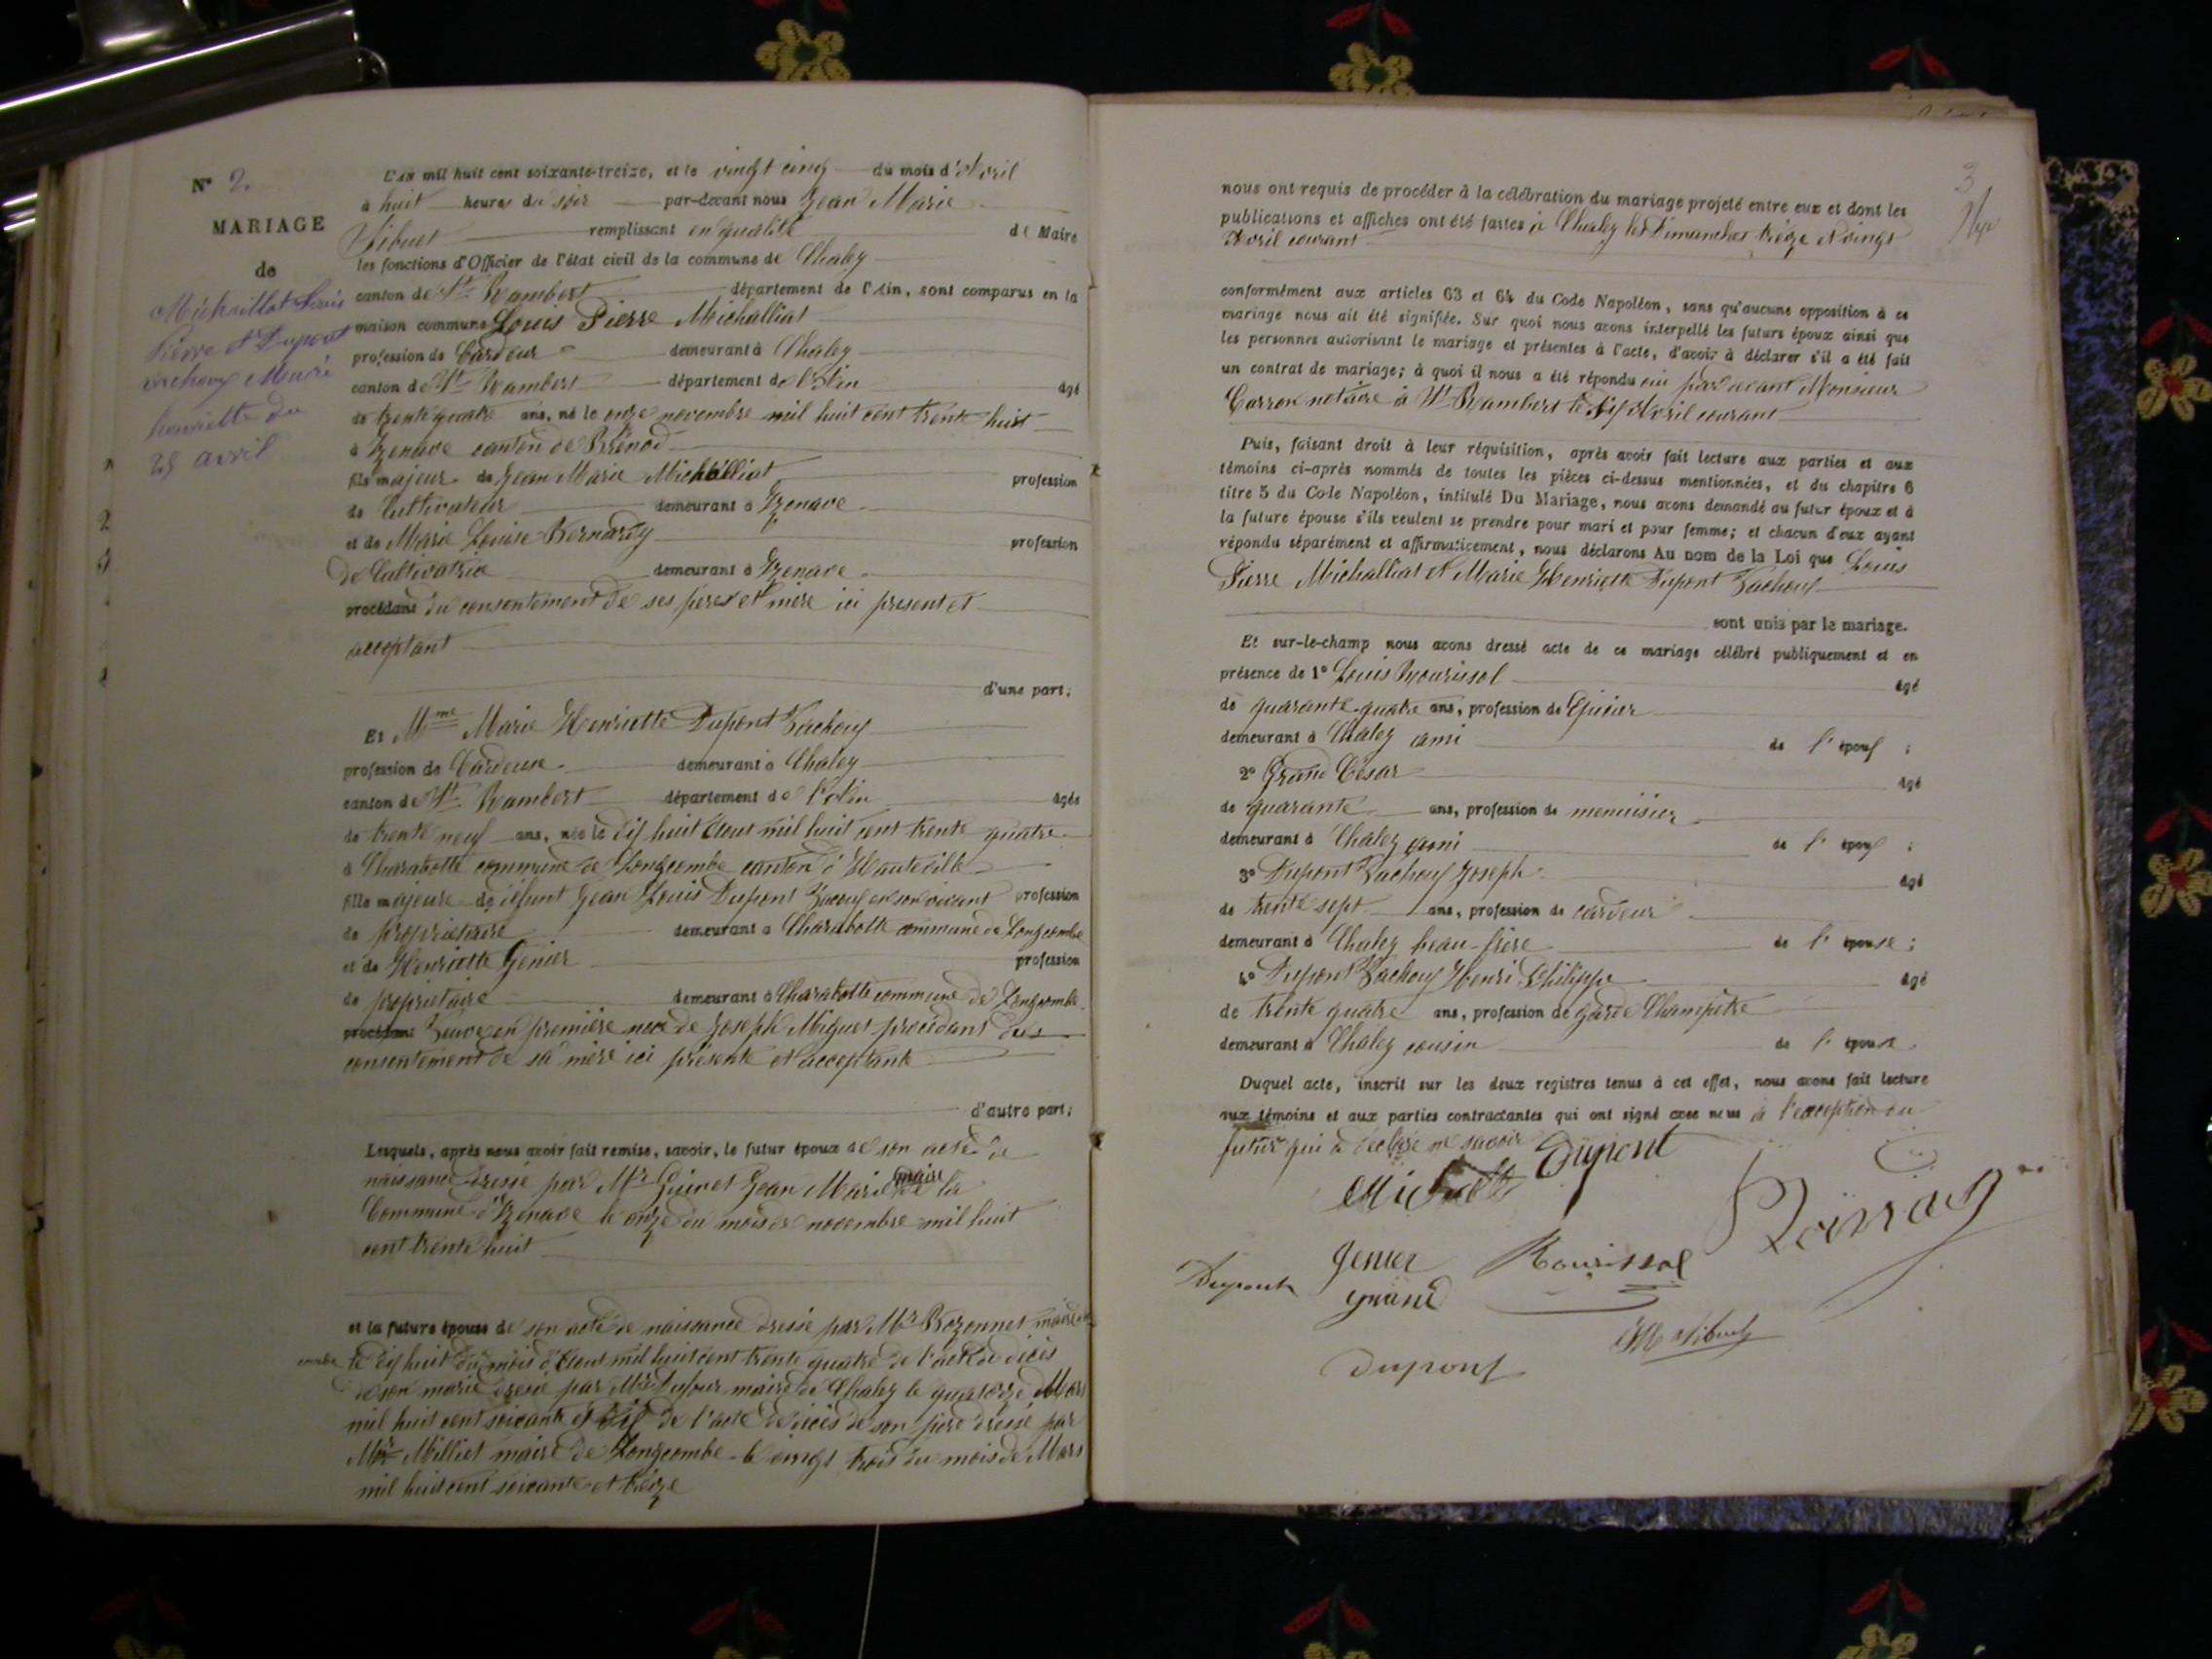 N° 2.
MARIAGE
de
Michaillat Louis
Pierre et Dupont
vachoux Marie
henriette du
25 avril
L'an mil huit cent soixante-treize, et le vingt cinq du mois d'Avril
à huit heures du soir par-devant nous Jean Marie
Sibuet remplissant en qualité de Maire
les fonctions d'Officier de l'état civil de la commune de Chaley
canton de St Rambert département de l'Ain, sont comparus en la
maison commune Louis Pierre Michalliat
profession de Cardeur demeurant à Chaley
canton de St Rambert département de l'Ain âgé
de trente quatre ans, né le onze novembre mil huit cent trente huit
à Izenave canton de Brénod
fils majeur de Jean Marie Michalliat profession
de Cultivateur demeurant à Izenave
et de Marie Louise Bernardy profession
de Cultivatrice demeurant à Izenave
procédant du consentement de ses peres et mère ici present et
acceptant
d'une part;
Et Mme Marie Henriette Dupont Vachouf
profession de Cardeuse demeurant à Chaley
canton de St Rambert département de l'Ain âgée
de trente neuf ans, née le dix huit Aout mil huit cent trente quatre
à Charabotte commune de Longcombe canton d'Hauteville
fille majeure de défunt Jean Louis Dupont en son vivant profession
de propriétaire demeurant à Charabotte commune de Longcombe
et de Henriette Genier profession
de propriétaire demeurant à Charabotte commune de Longcombe
procédant Veuve en première noce de Joseph Miguet procédant du
consentement de sa mère ici présente et acceptante
d'autre part;
Lesquels, après nous avoir fait remise, savoir, le futur époux de son acte de
naissance dressé par Mr Guinet Jean Marie maire de la
Commune d'Izenave le onze du mois de novembre mil huit
cent trente huit
et la future épouse de son acte de naissance dressé par Mr Bozonnet maire
le dix huit du mois d'Aout mil huit cent trente quatre de l'acte de décès
de son marie dressé par Mr Dufour maire de Chaley le quatorze Mars
mil huit cent soixante et dix de l'acte de décès de son père dressé par
Mr Milliet maire de Longcombe le vingt trois du mois de Mars
mil huit cent soixante et treize
3
nous ont requis de procéder à la célébration du mariage projeté entre eux et dont les
publications et affiches ont été faites à Chaley les Dimanches treize et vingt
Avril courant
conformément aux articles 63 et 64 du Code Napoléon, sans qu'aucune opposition à ce
mariage nous ait été signifiée. Sur quoi nous avons interpellé les futurs époux ainsi que
les personnes autorisant le mariage et présentes à l'acte, d'avoir à déclarer s'il a été fait
un contrat de mariage; à quoi il nous a été répondu oui par devant Monsieur
Carron notaire à St Rambert le dix Avril courant
Puis, faisant droit à leur réquisition, après avoir fait lecture aux parties et aux
témoins ci-après nommés de toutes les pièces ci-dessus mentionnées, et du chapitre 6
titre 5 du Code Napoléon, intitulé Du Mariage, nous avons demandé au futur époux et à
la future épouse s'ils veulent se prendre pour mari et pour femme; et chacun d'eux ayant
répondu séparément et affirmativement, nous déclarons Au nom de la Loi que Louis
Pierre Michalliat et Marie Henriette Dupont Vachouf
sont unis par le mariage.
Et sur-le-champ nous avons dressé acte de ce mariage célébré publiquement et en
présence de 1° Louis Rourissol âgé
de quarante quatre ans, profession de Epicier
demeurant à Chaley ami de l'époux ;
2° Grand César âgé
de quarante ans, profession de menuisier
demeurant à Chaley ami de l'époux ;
3° Dupont Vachouf Joseph âgé
de trente sept ans, profession de cardeur
demeurant à Chaley beau-frère de l'épouse ;
4° Dupont Vachouf Henri Philippe âgé
de trente quatre ans, profession de garde Champêtre
demeurant à Chaley cousin de l'épouse.
Duquel acte, inscrit sur les deux registres tenus à cet effet, nous avons fait lecture
aux témoins et aux parties contractantes qui ont signé avec nous à l'exception du
futur qui a déclaré ne savoir
Dupont
Dupont
Genier
Rourissol
grand
JM Sibuet
Dupont